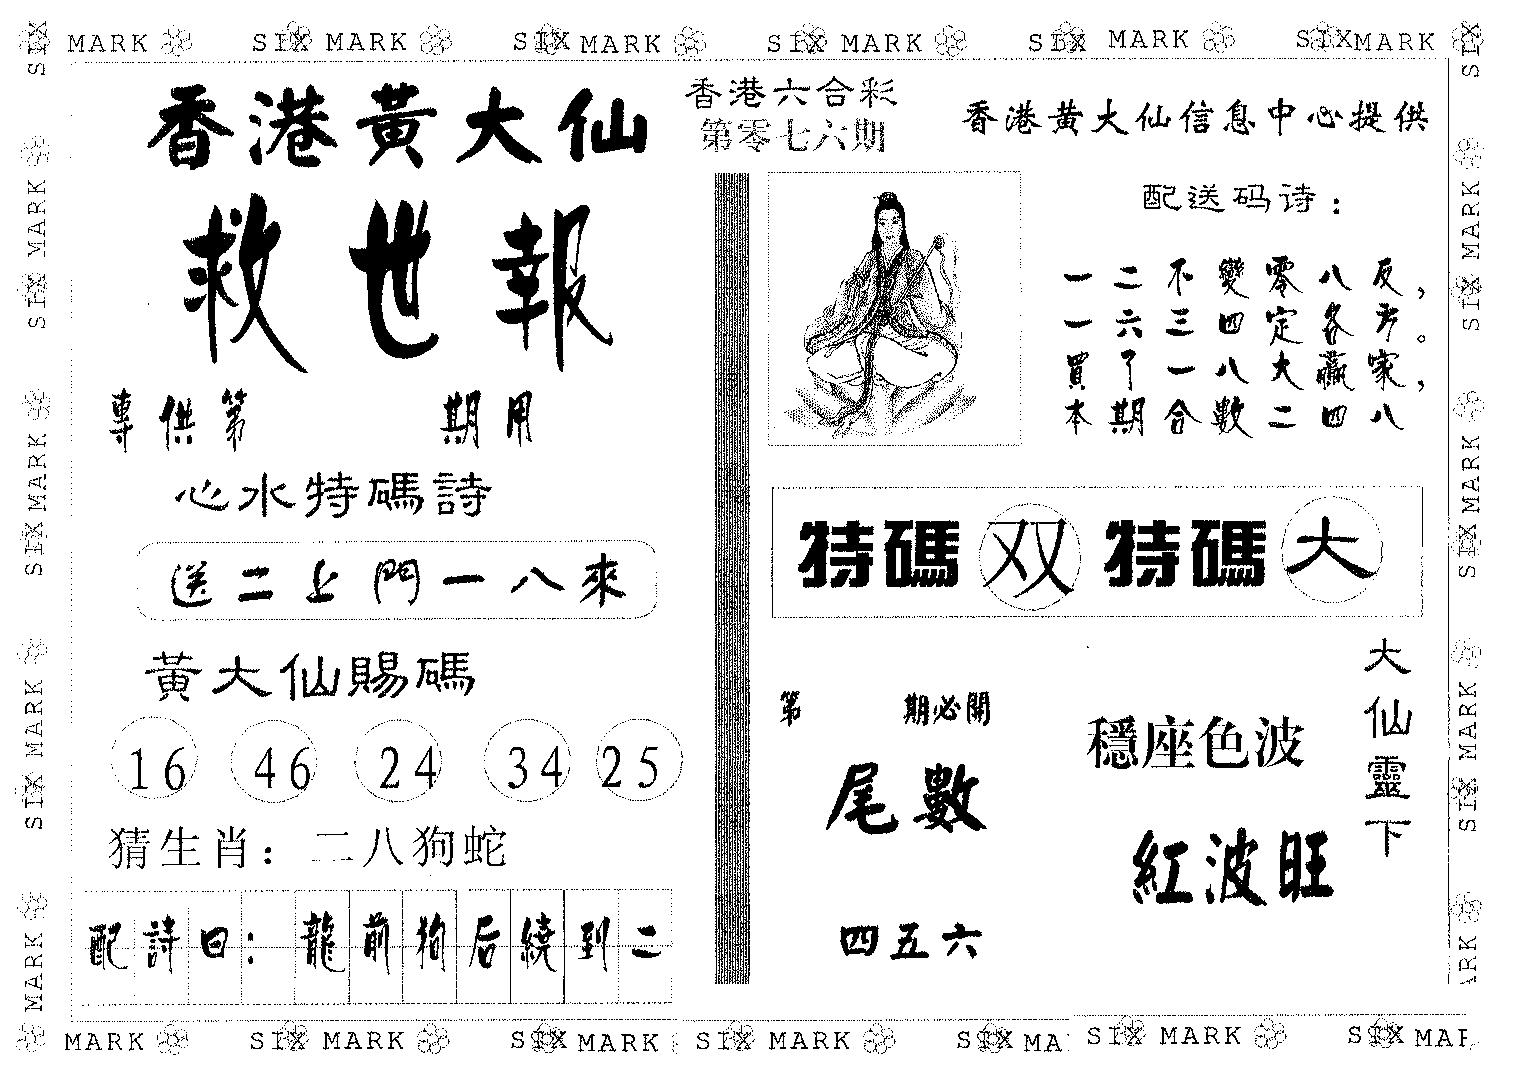 SIX MARK SIX MARK SIX MARK SIX MARK SIX MARK SIX MARK
香港黃大仙
救世報
專供第 期用
心水特碼詩
送二上門一八來
黃大仙賜碼
16 46 24 34 25
猜生肖：二八狗蛇
配詩曰：龍前狗后繞到二
香港六合彩
第零七六期
香港黃大仙信息中心提供
配送码诗：
一二不變零八反，
一六三四定各方。
買了一八大贏家，
本期合數二四八
特碼 双 特碼 大
第 期必開
尾數
四五六
穩座色波
紅波旺
大仙靈下
MARK SIX MARK SIX MARK SIX MARK SIX MA SIX MARK SIX MAR